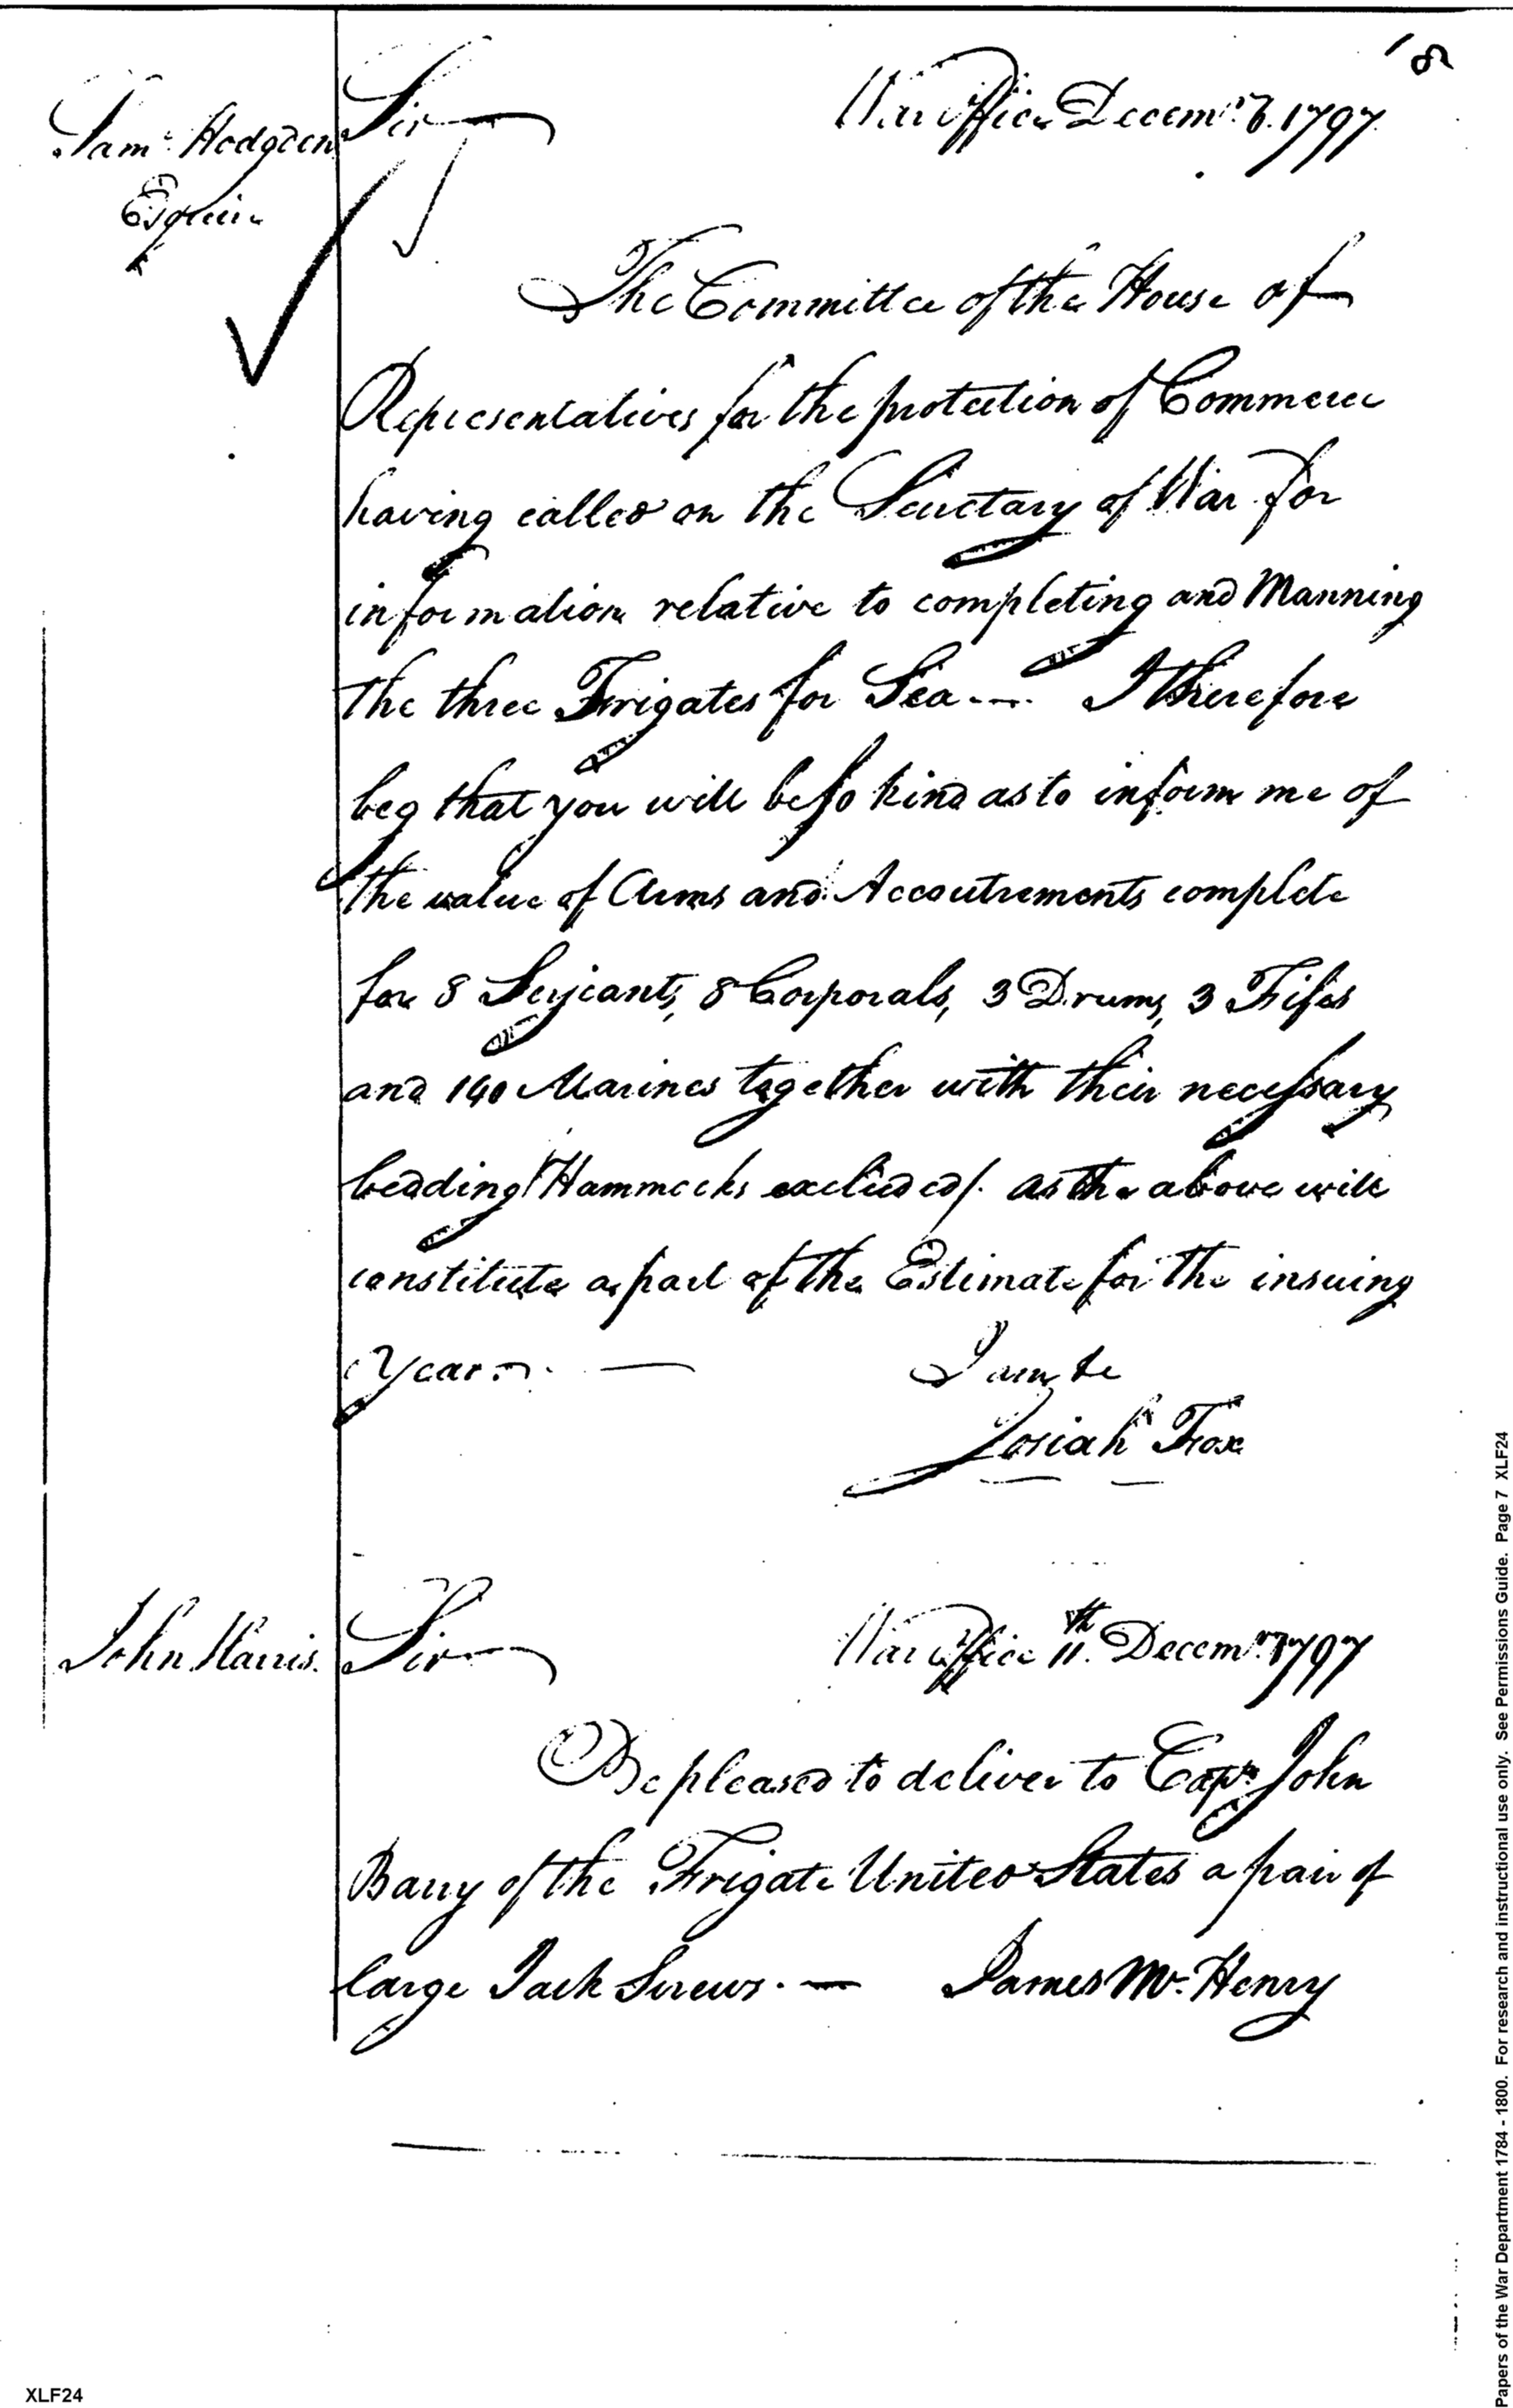 18
Sam.l Hodgden
Esquire
Sir
War Office Decem.r 6. 1797
The Committee of the House of
Representatives for the protection of Commerce
having called on the Secretary of War for
information relative to completing and Manning
the three Frigates for Sea --- I therefore
beg that you will be so kind as to inform me of
the value of Arms and Accoutrements complete
for 8 Serjeants, 8 Corporals, 3 Drums, 3 Fifes
and 140 Marines together with their necessary
bedding /Hammocks excluded/. as the above will
constitute a part of the Estimate for the insuing
Year. —
I am &c
Josiah Fox
John Harris.
Sir
War Office 11.th Decem.r 1797
Be pleased to deliver to Cap.tn John
Barry of the Frigate United States a pair of
large Jack Screws. —
James McHenry
XLF24
Papers of the War Department 1784 - 1800. For research and instructional use only. See Permissions Guide. Page 7 XLF24